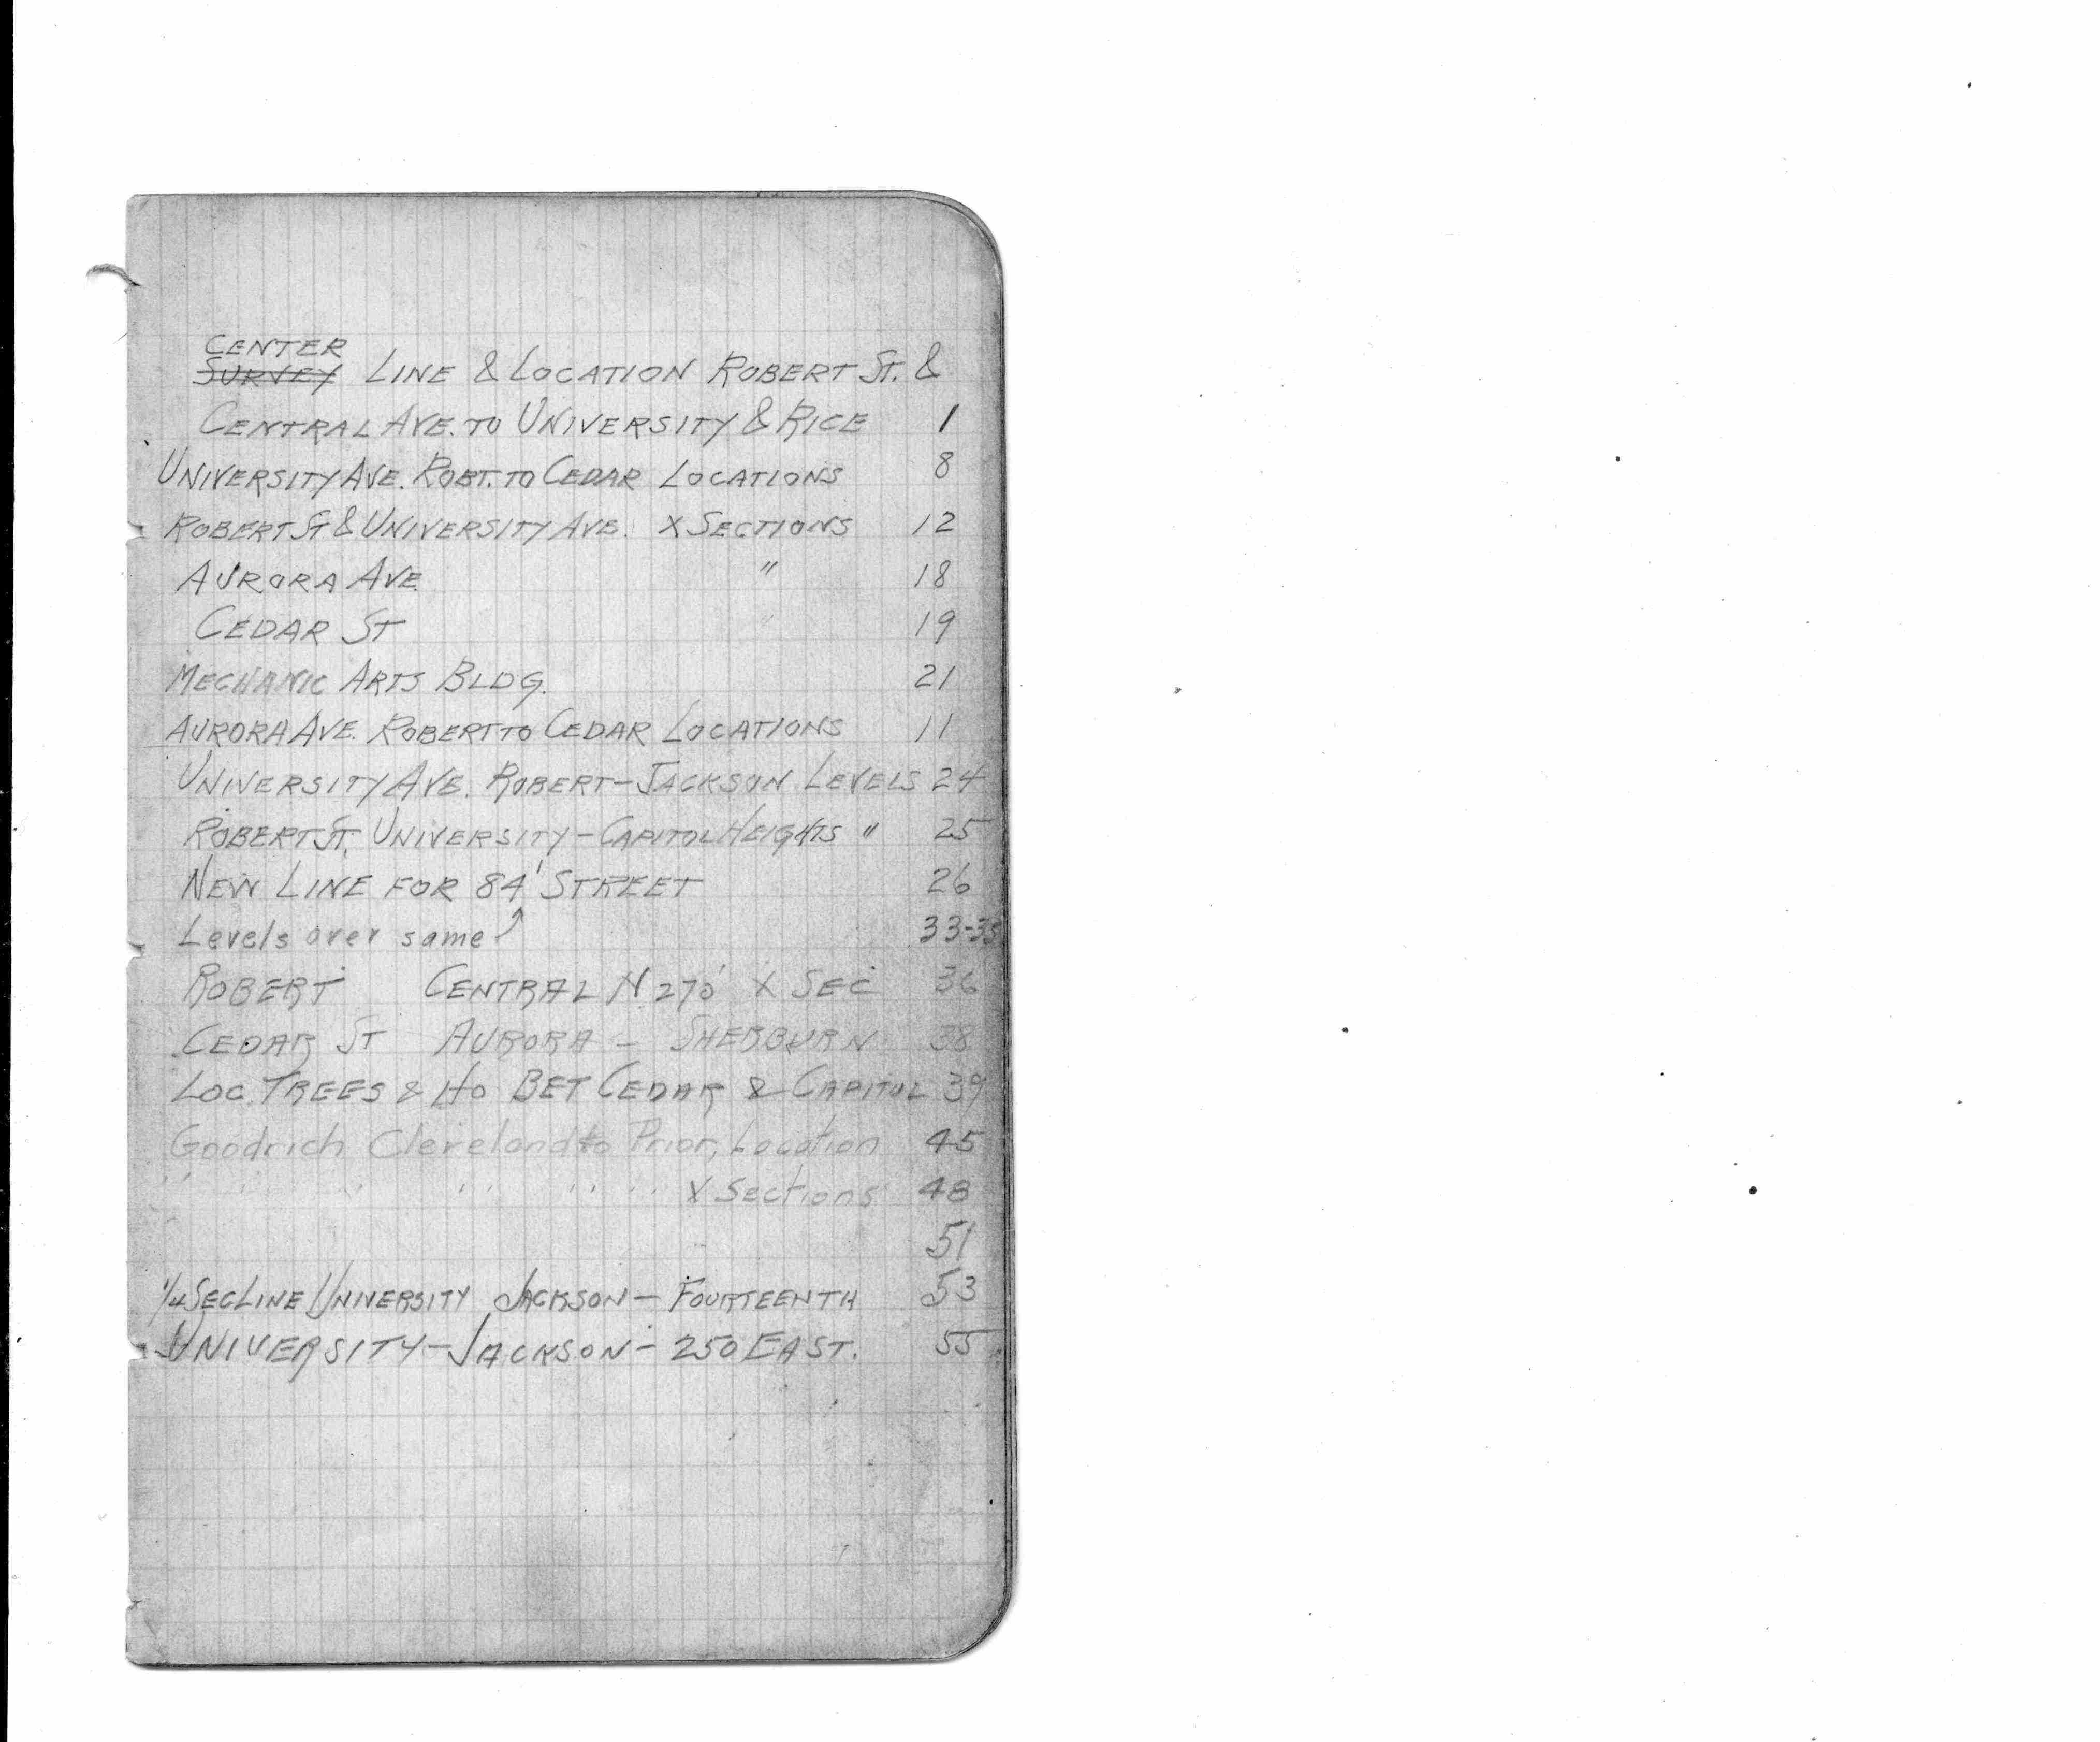 CENTER
SURVEY LINE & LOCATION ROBERT ST. &
CENTRAL AVE. TO UNIVERSITY & RICE 1
UNIVERSITY AVE. ROBT. TO CEDAR LOCATIONS 8
ROBERT ST & UNIVERSITY AVE. X SECTIONS 12
AURORA AVE. " 18
CEDAR ST " 19
MECHANIC ARTS BLDG. 21
AURORA AVE. ROBERT TO CEDAR LOCATIONS 11
UNIVERSITY AVE. ROBERT-JACKSON LEVELS 24
ROBERT ST. UNIVERSITY-CAPITOL HEIGHTS " 25
NEW LINE FOR 84' STREET 26
Levels over same 33-35
ROBERT CENTRAL N 270' X SEC 36
CEDAR ST AURORA - SHERBURN 38
LOC. TREES & HO BET CEDAR & CAPITOL 39
Goodrich Cleveland to Prior, Location 45
" " " " " " X Sections 48
51
1/4 SEC LINE UNIVERSITY JACKSON - FOURTEENTH 53
UNIVERSITY-JACKSON - 250 EAST. 55